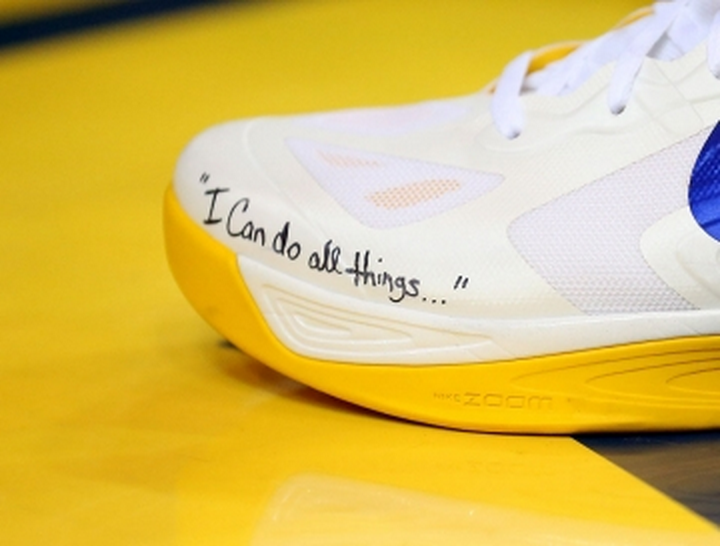 "I Can do all things..."
NIKE ZOOM